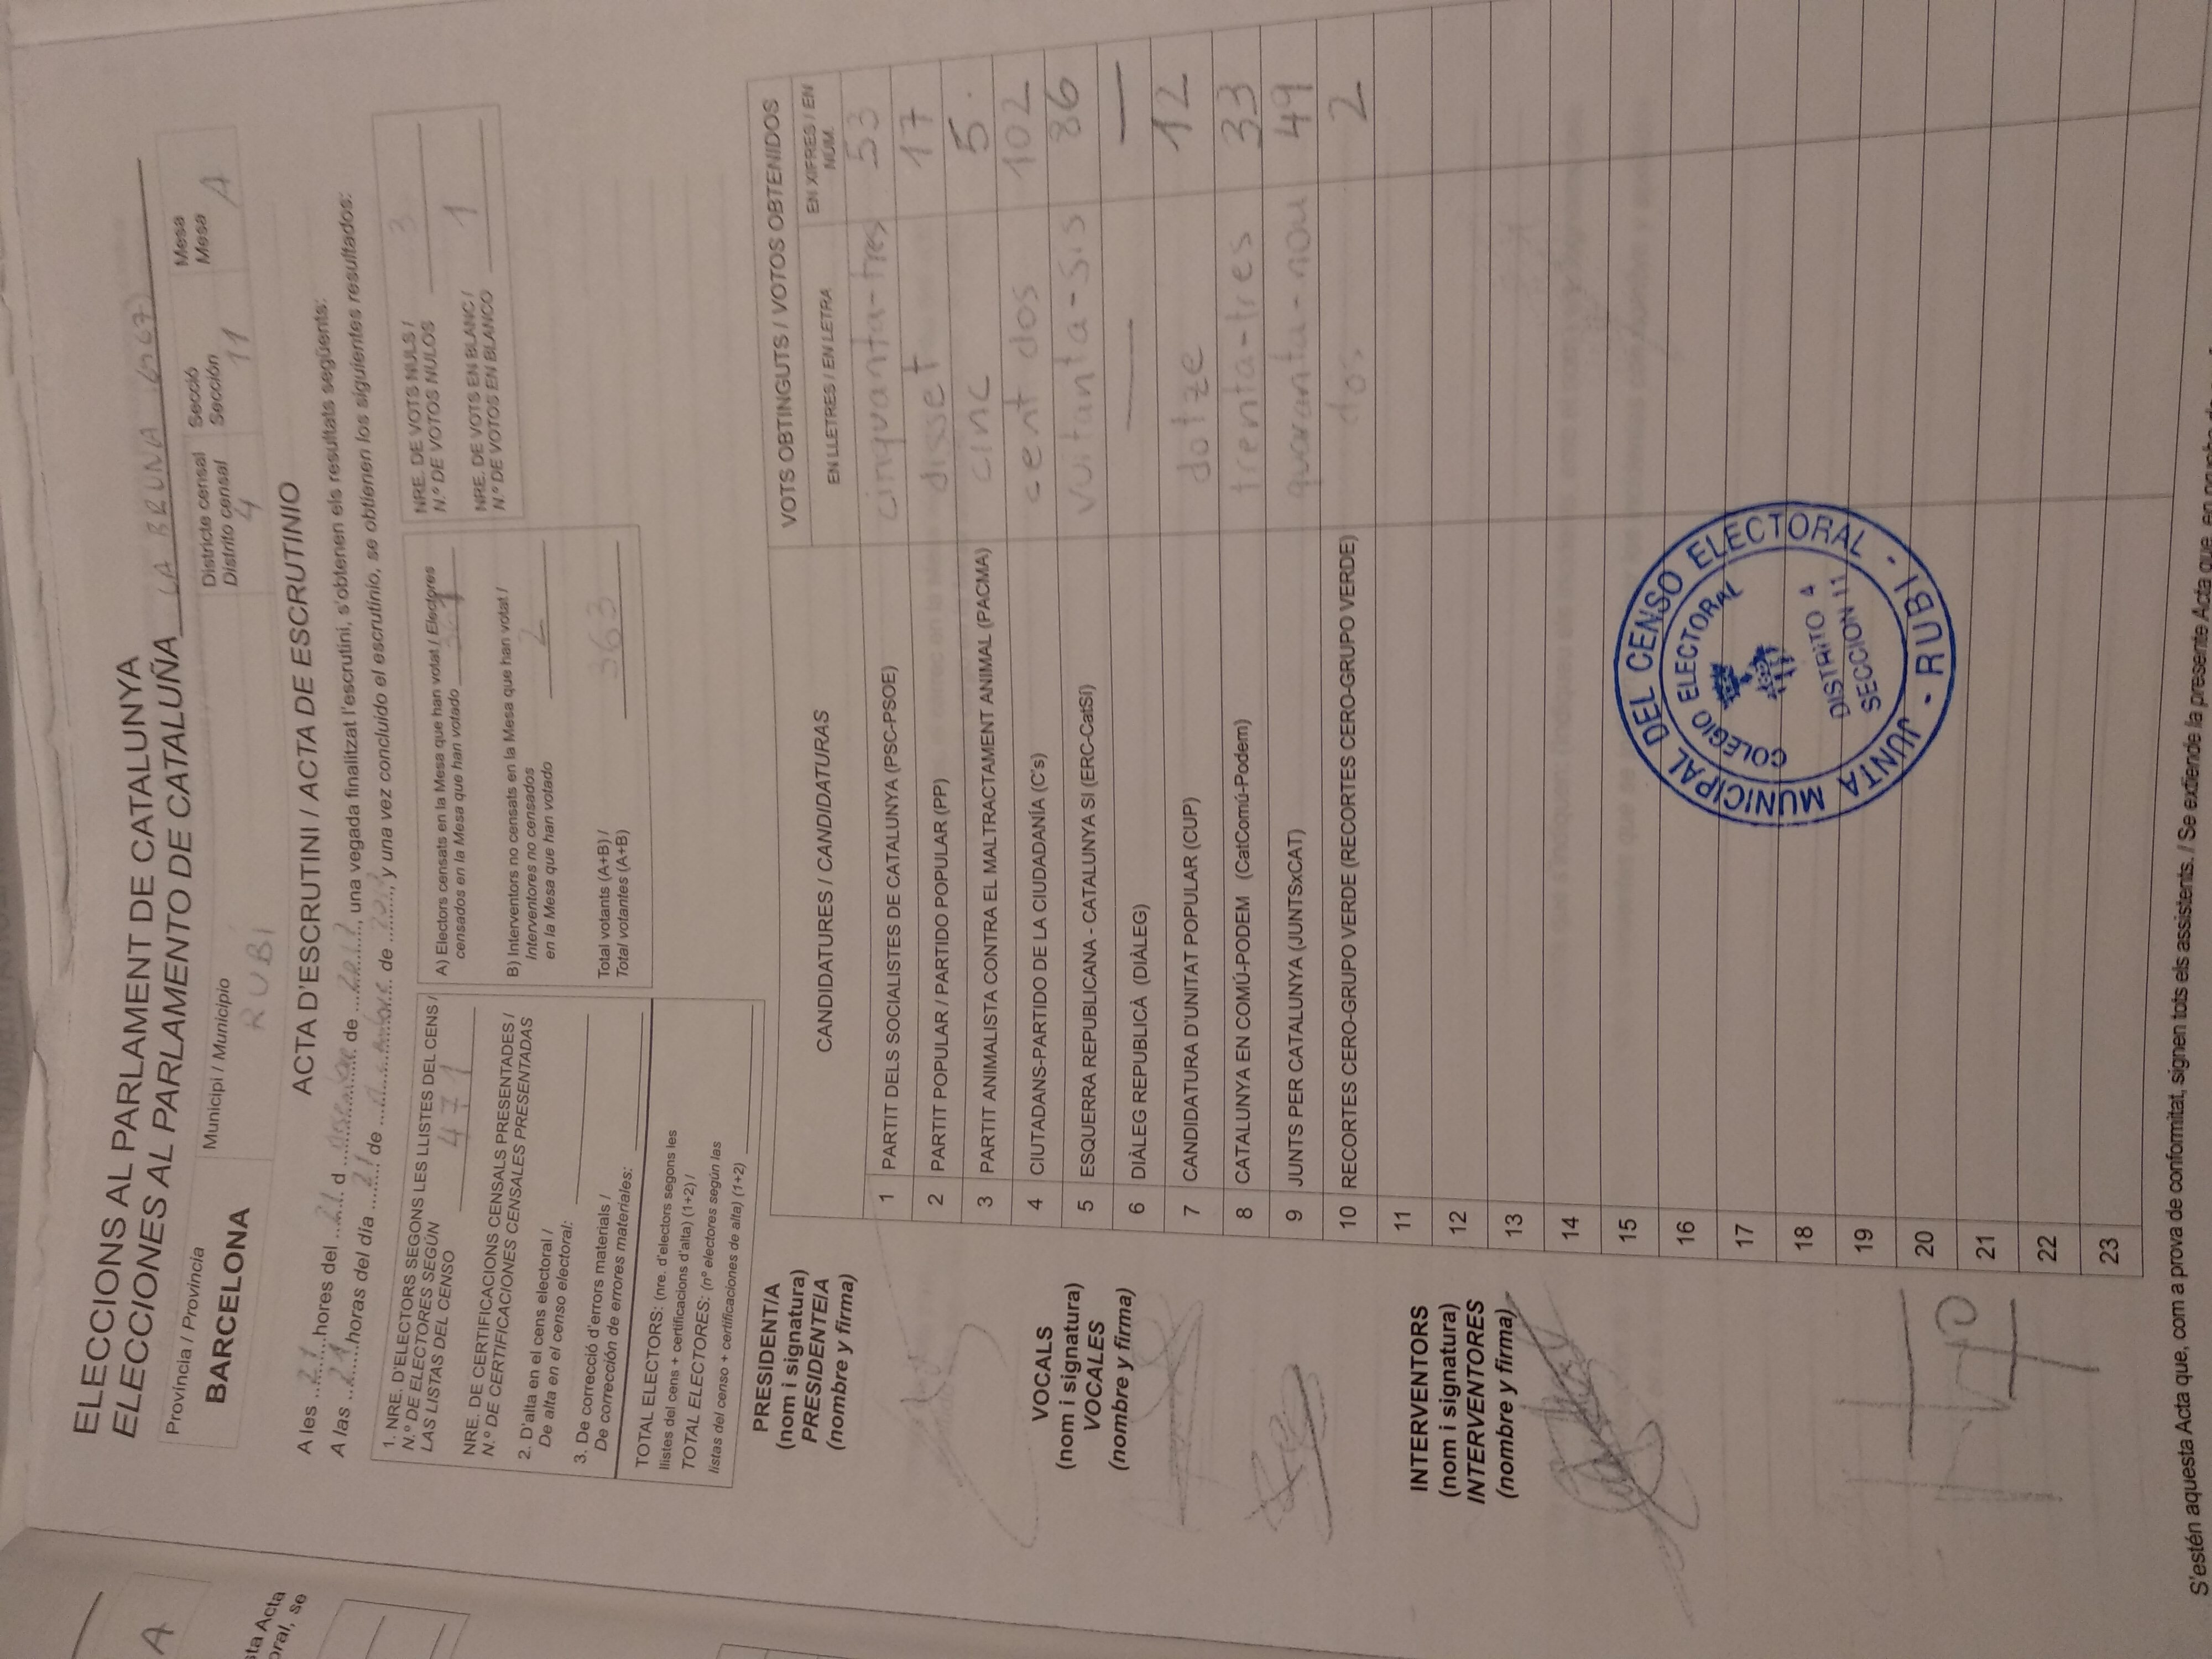 A
sta Acta
oral, se
ELECCIONS AL PARLAMENT DE CATALUNYA
ELECCIONES AL PARLAMENTO DE CATALUÑA LA BRUNA
Província / Provincia
BARCELONA
Municipi / Municipio
RUBI
Districte censal
Distrito censal
4
Secció
Sección
11
Mesa
Mesa
A
ACTA D'ESCRUTINI / ACTA DE ESCRUTINIO
A les 21 hores del 21 d desembre de 2017, una vegada finalitzat l'escrutini, s'obtenen els resultats següents:
A las 21 horas del día 21 de de 2017, y una vez concluido el escrutinio, se obtienen los siguientes resultados:
1. NRE. D'ELECTORS SEGONS LES LLISTES DEL CENS /
N.º DE ELECTORES SEGÚN
LAS LISTAS DEL CENSO 471
NRE. DE CERTIFICACIONS CENSALS PRESENTADES /
N.º DE CERTIFICACIONES CENSALES PRESENTADAS
2. D'alta en el cens electoral /
De alta en el censo electoral:
3. De correcció d'errors materials /
De corrección de errores materiales:
TOTAL ELECTORS: (nre. d'electors segons les
llistes del cens + certificacions d'alta) (1+2) /
TOTAL ELECTORES: (nº electores según las
listas del censo + certificaciones de alta) (1+2)
A) Electors censats en la Mesa que han votat / Electores
censados en la Mesa que han votado 361
B) Interventors no censats en la Mesa que han votat /
Interventores no censados
en la Mesa que han votado 2
Total votants (A+B) /
Total votantes (A+B) 363
NRE. DE VOTS NULS /
N.º DE VOTOS NULOS 3
NRE. DE VOTS EN BLANC /
N.º DE VOTOS EN BLANCO 1
PRESIDENT/A
(nom i signatura)
PRESIDENTE/A
(nombre y firma)
VOCALS
(nom i signatura)
VOCALES
(nombre y firma)
INTERVENTORS
(nom i signatura)
INTERVENTORES
(nombre y firma)
CANDIDATURES / CANDIDATURAS
VOTS OBTINGUTS / VOTOS OBTENIDOS
EN LLETRES / EN LETRA
EN XIFRES / EN
NÚM.
1 PARTIT DELS SOCIALISTES DE CATALUNYA (PSC-PSOE) cinquanta-tres 53
2 PARTIT POPULAR / PARTIDO POPULAR (PP) disset 17
3 PARTIT ANIMALISTA CONTRA EL MALTRACTAMENT ANIMAL (PACMA) cinc 5
4 CIUTADANS-PARTIDO DE LA CIUDADANÍA (C's) cent dos 102
5 ESQUERRA REPUBLICANA - CATALUNYA SI (ERC-CatSí) vuitanta-sis 86
6 DIÀLEG REPUBLICÀ (DIÀLEG) — —
7 CANDIDATURA D'UNITAT POPULAR (CUP) dotze 12
8 CATALUNYA EN COMÚ-PODEM (CatComú-Podem) trenta-tres 33
9 JUNTS PER CATALUNYA (JUNTSxCAT) quaranta-nou 49
10 RECORTES CERO-GRUPO VERDE (RECORTES CERO-GRUPO VERDE) dos 2
11
12
13
14
15
16
17
18
19
20
21
22
23
JUNTA MUNICIPAL DEL CENSO ELECTORAL
- RUBI -
COLEGIO ELECTORAL
DISTRITO 4
SECCION 11
S'estén aquesta Acta que, com a prova de conformitat, signen tots els assistents. / Se extiende la presente Acta que, en prueba de